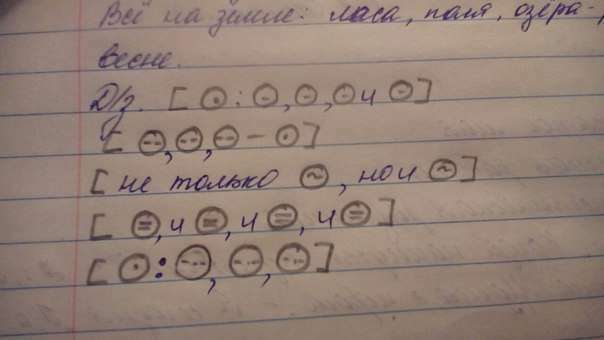 Всё на земле: маса, паля, озёра-
весне.
Д/з. [⊙: ⊖, ⊖, ⊖ и ⊖]
[⊖, ⊖, ⊖ – ⊙]
[не только ⊖, но и ⊖]
[⊜, и ⊜, и ⊜, и ⊜]
[⊙: ⊖, ⊖, ⊖]